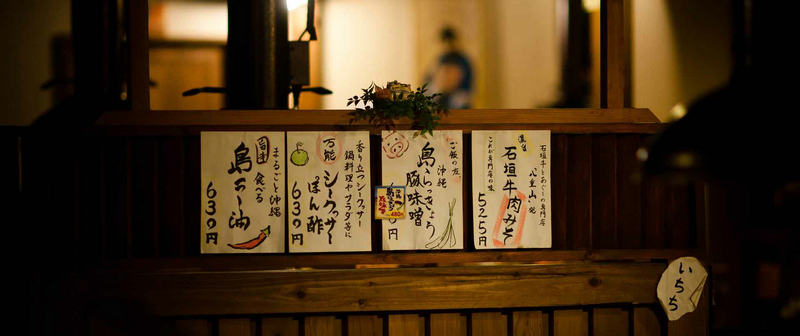 まるごと沖縄
食べる
島ラー油
630円
香り立つシークヮサー
鍋料理やサラダ等に
万能
シークヮサー
ぽん酢
630円
ご飯の友
沖縄
島らっきょう
豚味噌
480円
円
石垣牛とあぐーの専門店
石垣牛肉みそ
これが専門店の味
525円
いちち